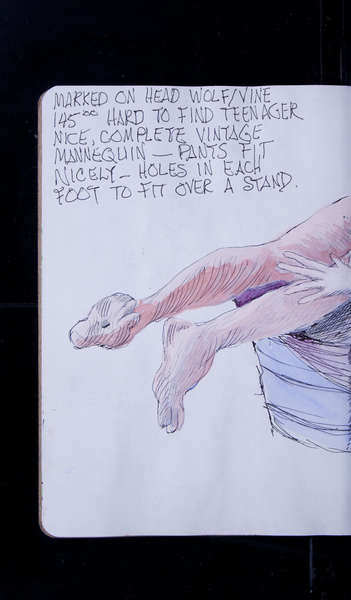 MARKED ON HEAD WOLF/VINE
145⁰⁰ HARD TO FIND TEENAGER
NICE, COMPLETE VINTAGE
MANNEQUIN — PANTS FIT
NICELY — HOLES IN EACH
FOOT TO FIT OVER A STAND.